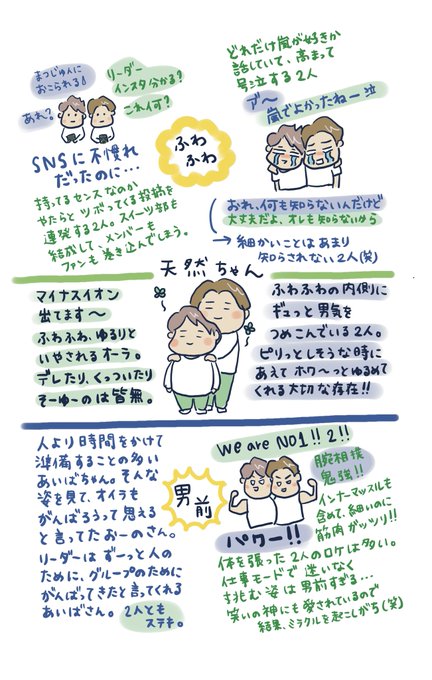 まつじゅんに
おこられる！
あれ？
リーダー
インスタ分かる？
これ何？
SNSに不慣れ
だったのに…
持ってるセンスなのか
やたらとツボってくる投稿を
連発する2人。スイーツ部も
結成して、メンバーも
ファンも巻き込んでしまう。
ふわ
ふわ
どれだけ嵐が好きか
話していて、高まって
号泣する2人
ア〜
嵐でよかったねー
おれ、何も知らないんだけど
大丈夫だよ、オレも知らないから
→細かいことはあまり
知らされない2人(笑)
天然ちゃん
マイナスイオン
出てます〜
ふわふわ、ゆるりと
いやされるオーラ。
デレたり、くっついたり
そーゆーのは皆無。
ふわふわの内側に
ギュっと男気を
つめこんでいる2人。
ピリっとしそうな時に
あえてホワ〜っとゆるめて
くれる大切な存在!!
人より時間をかけて
準備することの多い
あいばちゃん。そんな
姿を見て、オイラも
がんばろうって思える
と言ってたおーのさん。
リーダーはずーっと人の
ために、グループのために
がんばってきたと言ってくれる
あいばさん。2人とも
ステキ。
男前
We are NO1!! 2!!
腕相撲
鬼強!!
インナーマッスルも
含めて、細いのに
筋肉ガッツリ!!
パワー!!
体を張った2人のロケは多い。
仕事モードで迷いなく
挑む姿は男前すぎる…
笑いの神にも愛されているので
結果、ミラクルを起こしがち(笑)